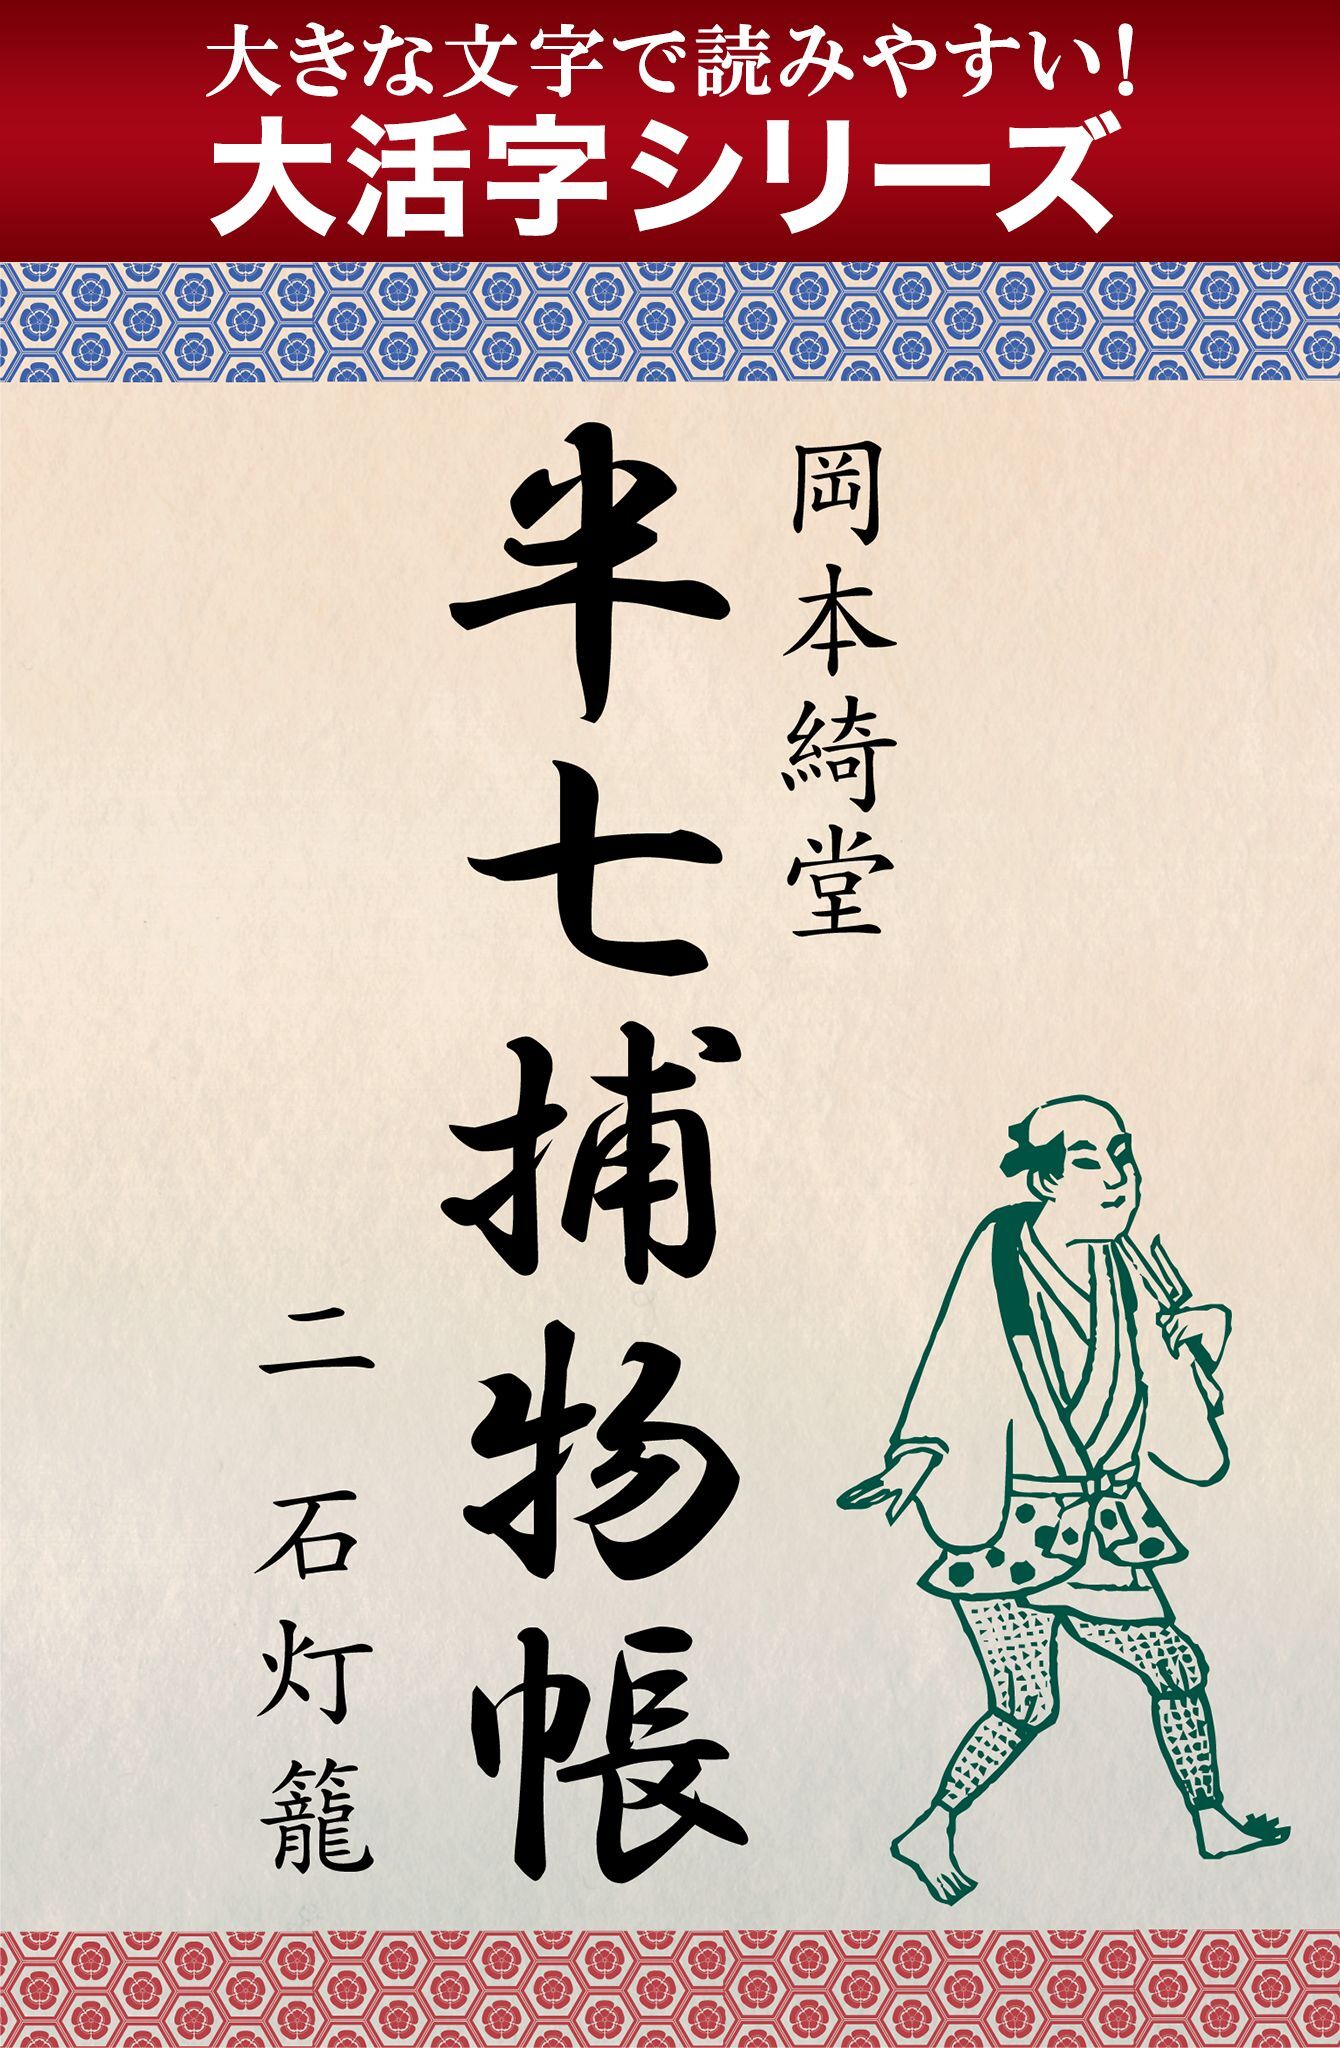 大きな文字で読みやすい!
大活字シリーズ
岡本綺堂
半七捕物帳
二 石灯籠